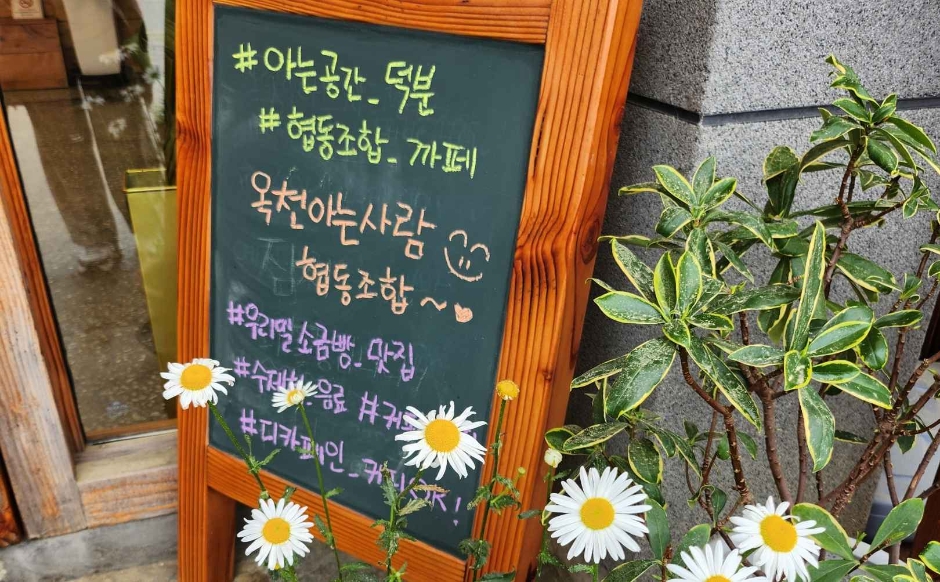 #아는공간_덕분
#협동조합_까페
옥천아는사람
협동조합~
#우리밀소금빵_맛집
#수제청_음료 #커
#디카페인_커피OK!